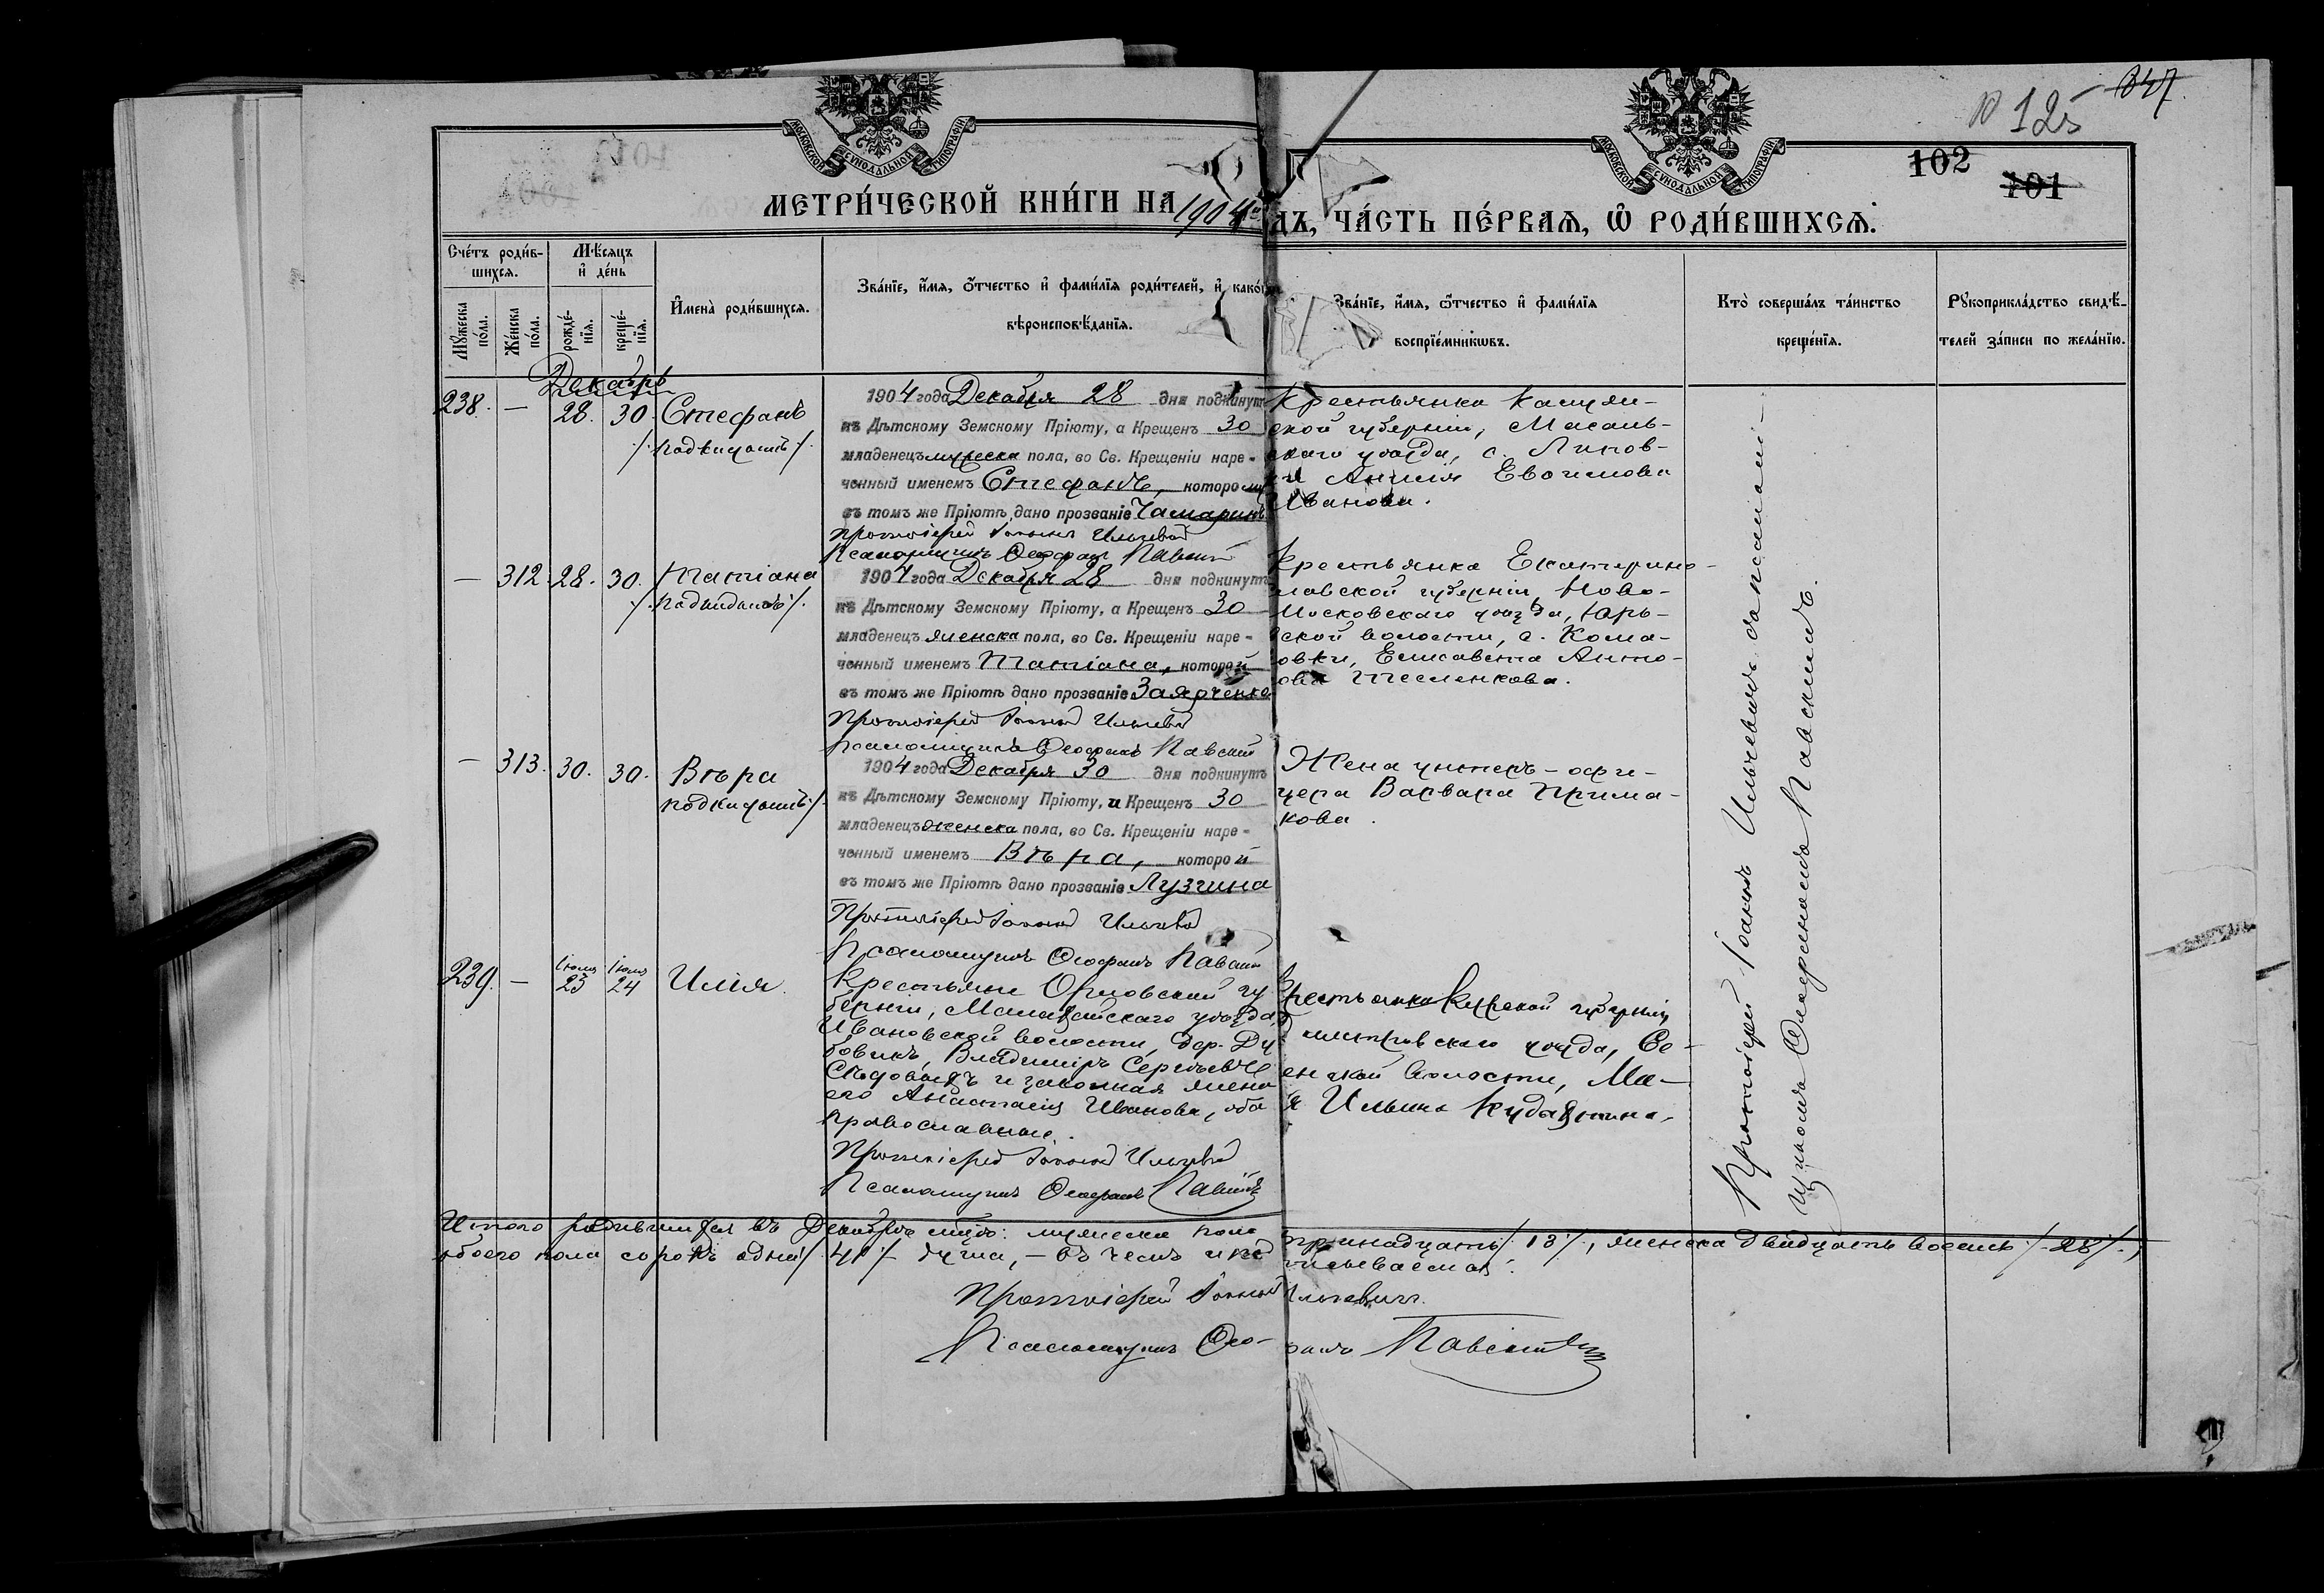 125 347
102
101
МОСКОВСКОЙ СѴНОДАЛЬНОЙ ТИПОГРАФІИ
МОСКОВСКОЙ СѴНОДАЛЬНОЙ ТИПОГРАФІИ
МЕТРИ́ЧЕСКОЙ КНИ́ГИ НА 1904
ДЪ, ЧА́СТЬ ПЕ́РВАЯ, Ѡ҆ РОДИ́ВШИХСЯ.
Сче́тъ роди́в-
шихся.
Мѣ́сяцъ
и҆ де́нь
Мꙋ́жеска
по́ла.
Же́нска
по́ла.
рожде́-
нїя.
креще́-
нїя.
И҆мена̀ роди́вшихся.
Зва́нїе, и҆́мя, ѻ҆́тчество и҆ фами́лїя роди́телей, и҆ како́
вѣроисповѣ́данїя.
Зва́нїе, и҆́мя, ѻ҆́тчество и҆ фами́лїя
воспрїе́мникѡвъ.
Кто̀ соверша́лъ та́инство
креще́нїя.
Рꙋкоприкла́дство свидѣ́-
телей за́писи по жела́нїю.
Декабрь
238. — 28. 30. Стефанъ
/.подкидышъ/.
1904 года Декабря 28 дня подкинутъ
къ Дѣтскому Земскому Пріюту, а Крещенъ 30
младенецъ мужеска пола, во Св. Крещеніи наре-
ченный именемъ Стефанъ, которому
въ томъ же Пріютѣ дано прозваніе Чамаринъ
Протоіерей Іоаннъ Ильчевичъ
Псаломщикъ Ѳеофанъ Павскій
Крестьянка Калуж-
ской губерніи, Масаль-
скаго уѣзда, с. Липов-
Анисія Евфимова
Иванова.
— 312. 28. 30. Татіана
/.подкидышъ/.
1904 года Декабря 28 дня подкинутъ
къ Дѣтскому Земскому Пріюту, а Крещенъ 30
младенецъ женска пола, во Св. Крещеніи наре-
ченный именемъ Татіана, которой
въ томъ же Пріютѣ дано прозваніе Заярченко
Протоіерей Іоаннъ Ильчевичъ
Псаломщикъ Ѳеофанъ Павскій
Крестьянка Екатерино-
славской губерніи, Ново-
Московскаго уѣзда, Юрь-
ской волости, с.
Елисавета Анто-
ова Тесленкова.
— 313. 30. 30. Вѣра
подкидышъ/.
1904 года Декабря 30 дня подкинутъ
къ Дѣтскому Земскому Пріюту, и Крещенъ 30
младенецъ женска пола, во Св. Крещеніи наре-
ченный именемъ Вѣра, которой
въ томъ же Пріютѣ дано прозваніе Лузгина
Протоіерей Іоаннъ Ильчевичъ
Псаломщикъ Ѳеофанъ Павскій
Жена унтеръ-офи-
цера Варвара Прима-
кова.
239. — Іюля 23 Іюля 24 Илія.
Крестьяне Орловской гу
берніи, Малоархайскаго уѣзда,
Ивановской волости, дер. Ду
бовикъ, Владиміръ Сергѣевъ
Сѣдовыхъ и законная жена
его Анастасія Иванова, оба
православные.
Протоіерей Іоаннъ Ильчевичъ
Псаломщикъ Ѳеофанъ Павскій
Крестьянка Курской губерніи
Дмитровскаго уѣзда, Се-
енской волости, Ма-
я Ильина
Протоіерей Іоаннъ Ильчевичъ съ псаломщикомъ Ѳеофаномъ Павскимъ.
Итого родившихся въ Декабрѣ мцѣ: мужеска пола тринадцать /.13/., женска двадцать восемь /.28/.,
обоего пола сорокъ одна /.41/. душа, — въ чемъ и подписываемся:
Протоіерей Іоаннъ Ильчевичъ.
Псаломщикъ Ѳеофанъ Павскій